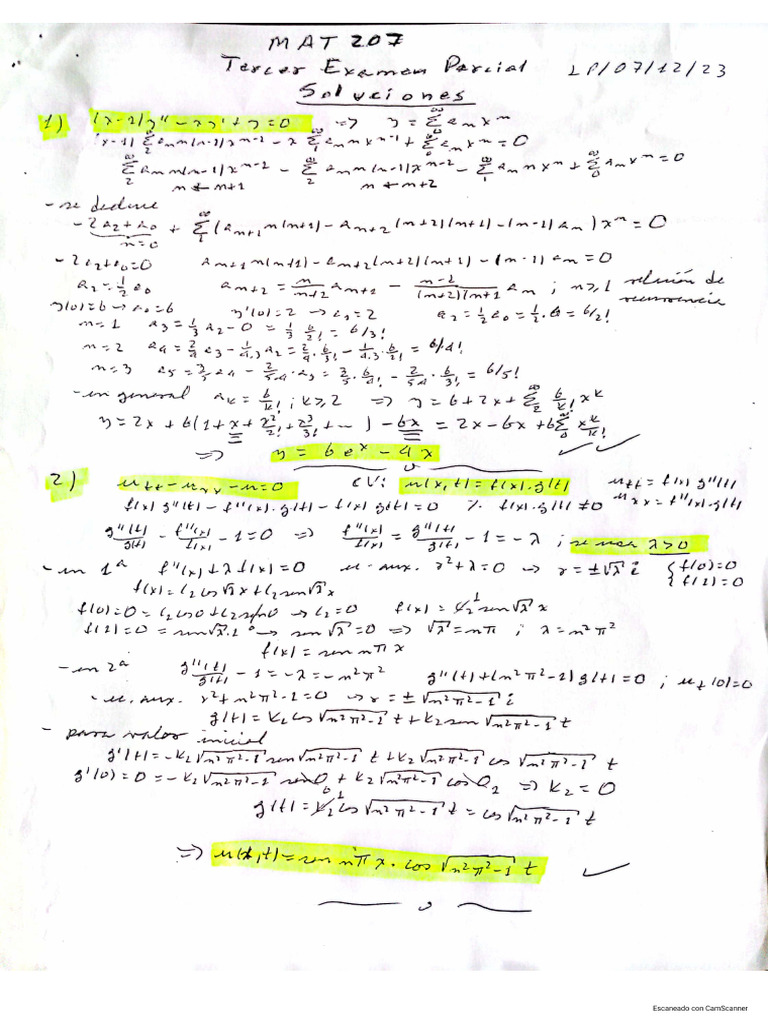 MAT 207
Tercer Examen Parcial LP/07/12/23
Soluciones
1) (x-1)y'' - xy' + y = 0 => y = Σ₀^∞ aₙxⁿ
(x-1) Σ₂^∞ aₙn(n-1)xⁿ⁻² - x Σ₁^∞ aₙn xⁿ⁻¹ + Σ₀^∞ aₙxⁿ = 0
Σ₂^∞ aₙn(n-1)xⁿ⁻¹ - Σ₂^∞ aₙn(n-1)xⁿ⁻² - Σ₁^∞ aₙn xⁿ + Σ₀^∞ aₙxⁿ = 0
n←n+1 n←n+2
- se deduce
-2a₂+a₀ + Σ₁^∞ (aₙ₊₁n(n+1) - aₙ₊₂(n+2)(n+1) - (n-1)aₙ)xⁿ = 0
n=0
-2a₂+a₀=0 aₙ₊₁n(n+1) - aₙ₊₂(n+2)(n+1) - (n-1)aₙ = 0
a₂ = 1/2 a₀ aₙ₊₂ = n/(n+2) aₙ₊₁ - (n-1)/((n+2)(n+1)) aₙ ; n≥1 relación de recurrencia
y(0)=6 → a₀=6 y'(0)=2 → a₁=2 a₂ = 1/2 a₀ = 1/2·6 = 6/2!
n=1 a₃ = 1/3 a₂ - 0 = 1/3 6/2! = 6/3!
n=2 a₄ = 2/4 a₃ - 1/4.3 a₂ = 2/4·6/3! - 1/4.3·6/2! = 6/4!
n=3 a₅ = 3/5 a₄ - 2/5.4 a₃ = 3/5·6/4! - 2/5.4·6/3! = 6/5!
- en general aₖ = 6/k! ; k≥2 => y = 6+2x+Σ₂^∞ 6/k! xᵏ
y = 2x + 6(1+x+x²/2!+x³/3!+⋯) - 6x = 2x - 6x + 6Σ₀^∞ xᵏ/k!
=> y = 6eˣ - 4x
2) uₜₜ - uₓₓ - u = 0 CV: u(x,t) = f(x)·g(t) uₜₜ = f(x) g''(t)
f(x) g''(t) - f''(x)·g(t) - f(x) g(t) = 0 /. f(x)·g(t) ≠ 0 uₓₓ = f''(x)·g(t)
g''(t)/g(t) - f''(x)/f(x) - 1 = 0 => f''(x)/f(x) = g''(t)/g(t) - 1 = -λ ; se usa λ>0
- en 1ª f''(x)+λf(x)=0 ec. aux. r²+λ=0 → r=±√λ i { f(0)=0
f(x) = c₁cos√λx + c₂sen√λx { f(1)=0
f(0)=0=c₁cos0+c₂sen0 → c₁=0 f(x) = c₂ 1 sen√λ x
f(1)=0=sen√λ·1 → sen√λ=0 => √λ=nπ ; λ=n²π²
f(x) = sen nπx
- en 2ª g''(t)/g(t) - 1 = -λ = -n²π² g''(t)+(n²π²-1)g(t)=0 ; uₜ(0)=0
- ec. aux. r²+n²π²-1=0 → r=±√(n²π²-1) i
g(t) = k₁cos√(n²π²-1) t + k₂sen√(n²π²-1) t
- para valor inicial
g'(t) = -k₁√(n²π²-1) sen√(n²π²-1) t + k₂√(n²π²-1) cos√(n²π²-1) t
g'(0)=0=-k₁√(n²π²-1) sen0 + k₂√(n²π²-1) cos0 1 => k₂=0
g(t) = k₁ 1 cos√(n²π²-1) t = cos√(n²π²-1) t
=> u(x,t) = sen nπx·cos√(n²π²-1) t
Escaneado con CamScanner